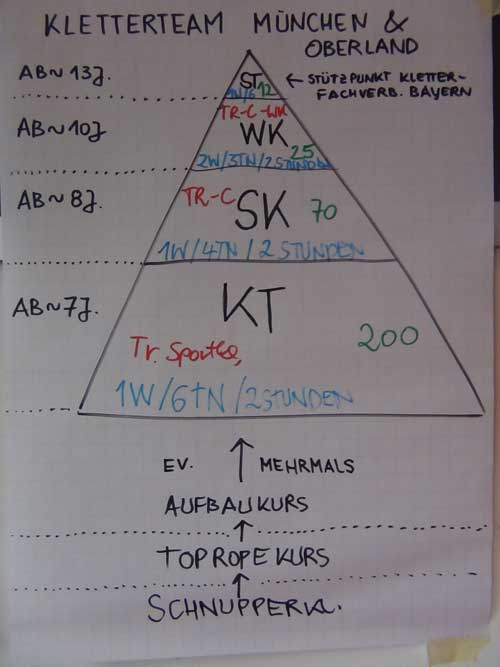 KLETTERTEAM MÜNCHEN &
OBERLAND
AB~13J.
ST
12
← STÜTZPUNKT KLETTER-
FACHVERB. BAYERN
TR-C-WK
AB~10J
WK
25
2W/3TN/2STUNDEN
AB~8J.
TR-C
SK
70
1W/4TN/2STUNDEN
KT
AB~7J.
200
Tr.
1W/6TN/2STUNDEN
EV. ↑ MEHRMALS
AUFBAUKURS
↑
TOPROPEKURS
↑
SCHNUPPERKL.